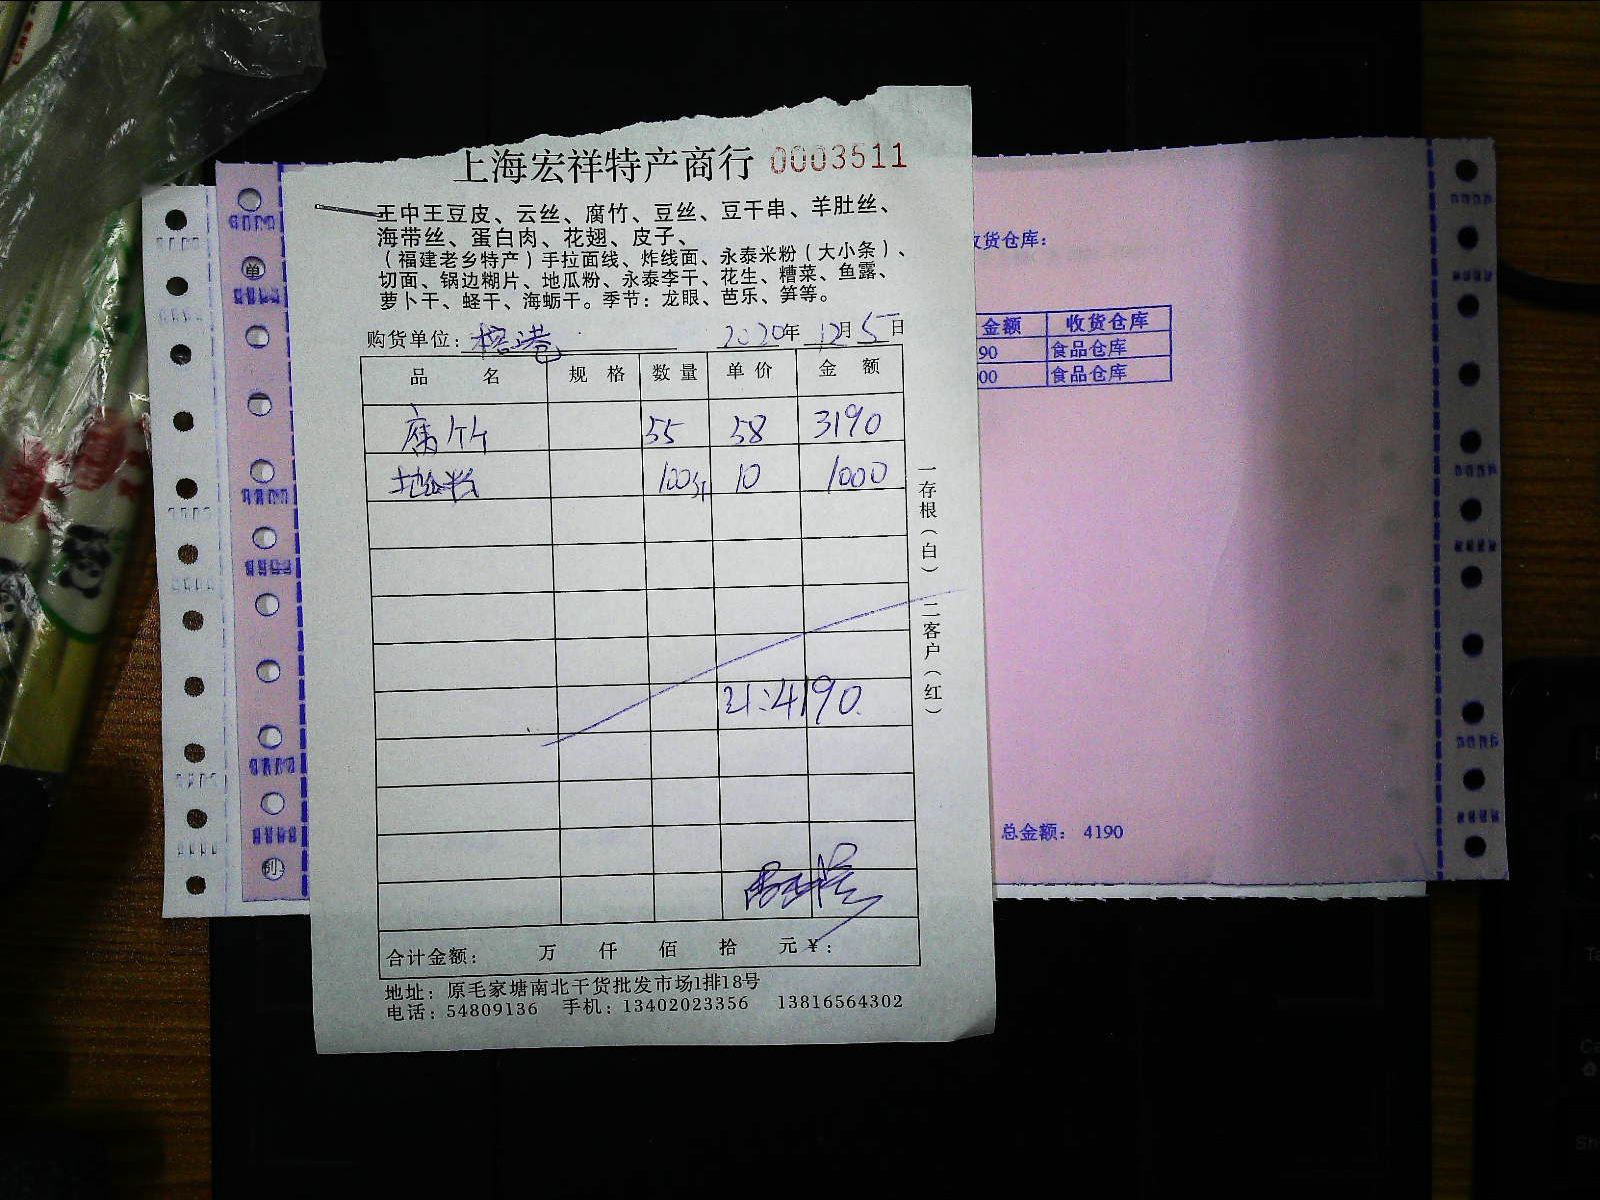 上海宏祥特产商行 0003511
王中王豆皮、云丝、腐竹、豆丝、豆干串、羊肚丝、
海带丝、蛋白肉、花翅、皮子、
（福建老乡特产）手拉面线、炸线面、永泰米粉（大小条）、
切面、锅边糊片、地瓜粉、永泰李干、花生、糟菜、鱼露、
萝卜干、蛏干、海蛎干。季节：龙眼、芭乐、笋等。
购货单位：榕港 2020年12月5日
品名 规格 数量 单价 金额
腐竹 55 58 3190
地瓜粉 100斤 10 1000
计:4190.
合计金额： 万 仟 佰 拾 元￥：
地址：原毛家塘南北干货批发市场1排18号
电话：54809136 手机：13402023356 13816564302
一存根（白） 二客户（红）
收货仓库：
金额 收货仓库
90 食品仓库
00 食品仓库
总金额： 4190
单